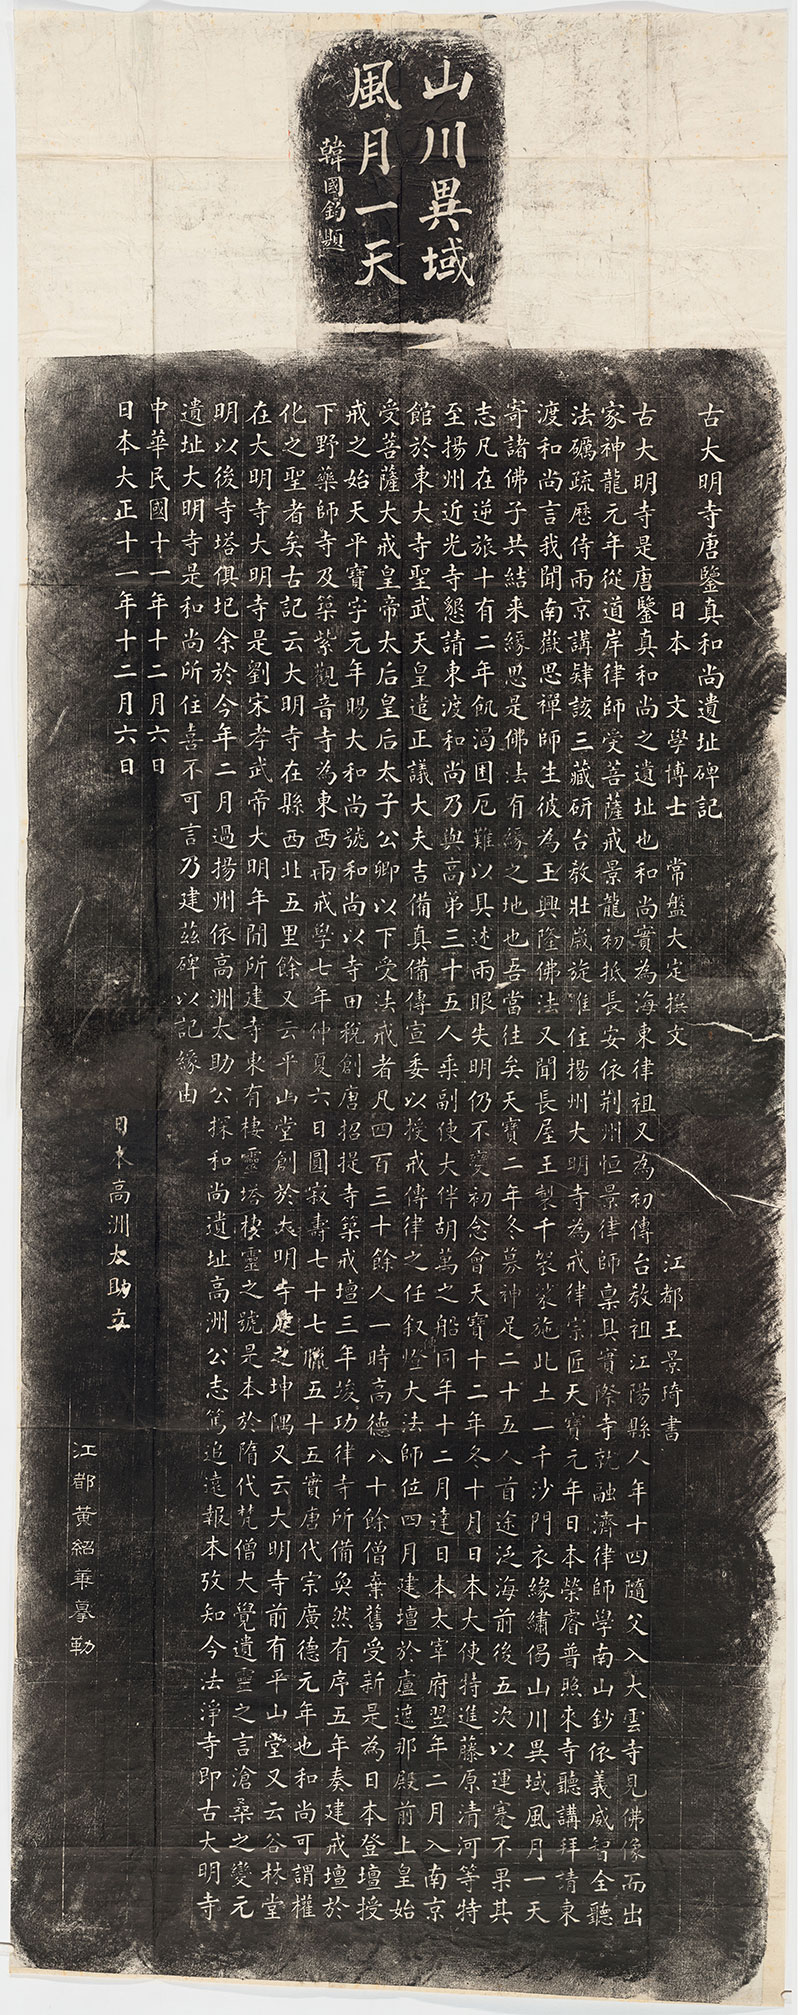 山川異域
風月一天
韓國鈞題
古大明寺唐鑒真和尚遺址碑記
日本 文學博士 常盤大定撰文 江都王景琦書
古大明寺是唐鑒真和尚之遺址也和尚實為海東律祖又為初傳台教祖江陽縣人年十四隨父入大雲寺見佛像而出
家神龍元年從道岸律師受菩薩戒景龍初抵長安依荆州恒景律師稟具實際寺就融濟律師學南山鈔依義威智全聽
法礪疏歷侍兩京講肄該三藏研台教壯歲旋淮住揚州大明寺為戒律宗匠天寶元年日本榮睿普照來寺聽講拜請東
渡和尚言我聞南嶽思禪師生彼為王興隆佛法又聞長屋王製千袈裟施此土一千沙門衣緣繡偈山川異域風月一天
寄諸佛子共結来緣思是佛法有緣之地也吾當往矣天寶二年冬募神足二十五人首途泛海前後五次以運蹇不果其
志凡在逆旅十有二年飢渴困厄難以具述兩眼失明仍不變初念會天寶十二年冬十月日本大使特進藤原清河等特
至揚州近光寺懇請東渡和尚乃與高弟三十五人乘副使大伴胡萬之船同年十二月達日本太宰府翌年二月入南京
館於東大寺聖武天皇遣正議大夫吉備真備傳宣委以授戒傳律之任叙傳燈大法師位四月建壇於盧遮那殿前上皇始
受菩薩大戒皇帝太后皇后太子公卿以下受法戒者凡四百三十餘人一時高德八十餘僧棄舊受新是為日本登壇授
戒之始天平寶字元年賜大和尚號和尚以寺田税創唐招提寺築戒壇三年竣功律寺所備奐然有序五年奏建戒壇於
下野藥師寺及築紫觀音寺為東西兩戒學七年仲夏六日圓寂壽七十七臘五十五實唐代宗廣德元年也和尚可謂權
化之聖者矣古記云大明寺在縣西北五里餘又云平山堂創於大明寺庭之坤隅又云大明寺前有平山堂又云谷林堂
在大明寺大明寺是劉宋孝武帝大明年間所建寺東有棲靈塔棲靈之號是本於隋代梵僧大覺遺靈之言滄桑之變元
明以後寺塔俱圮余於今年二月過揚州依高洲太助公探和尚遺址高洲公志篤追遠報本攷知今法淨寺即古大明寺
遺址大明寺是和尚所住喜不可言乃建茲碑以記緣由
中華民國十一年十二月六日
日本大正十一年十二月六日 日本高洲太助立
江都黄紹華摹勒